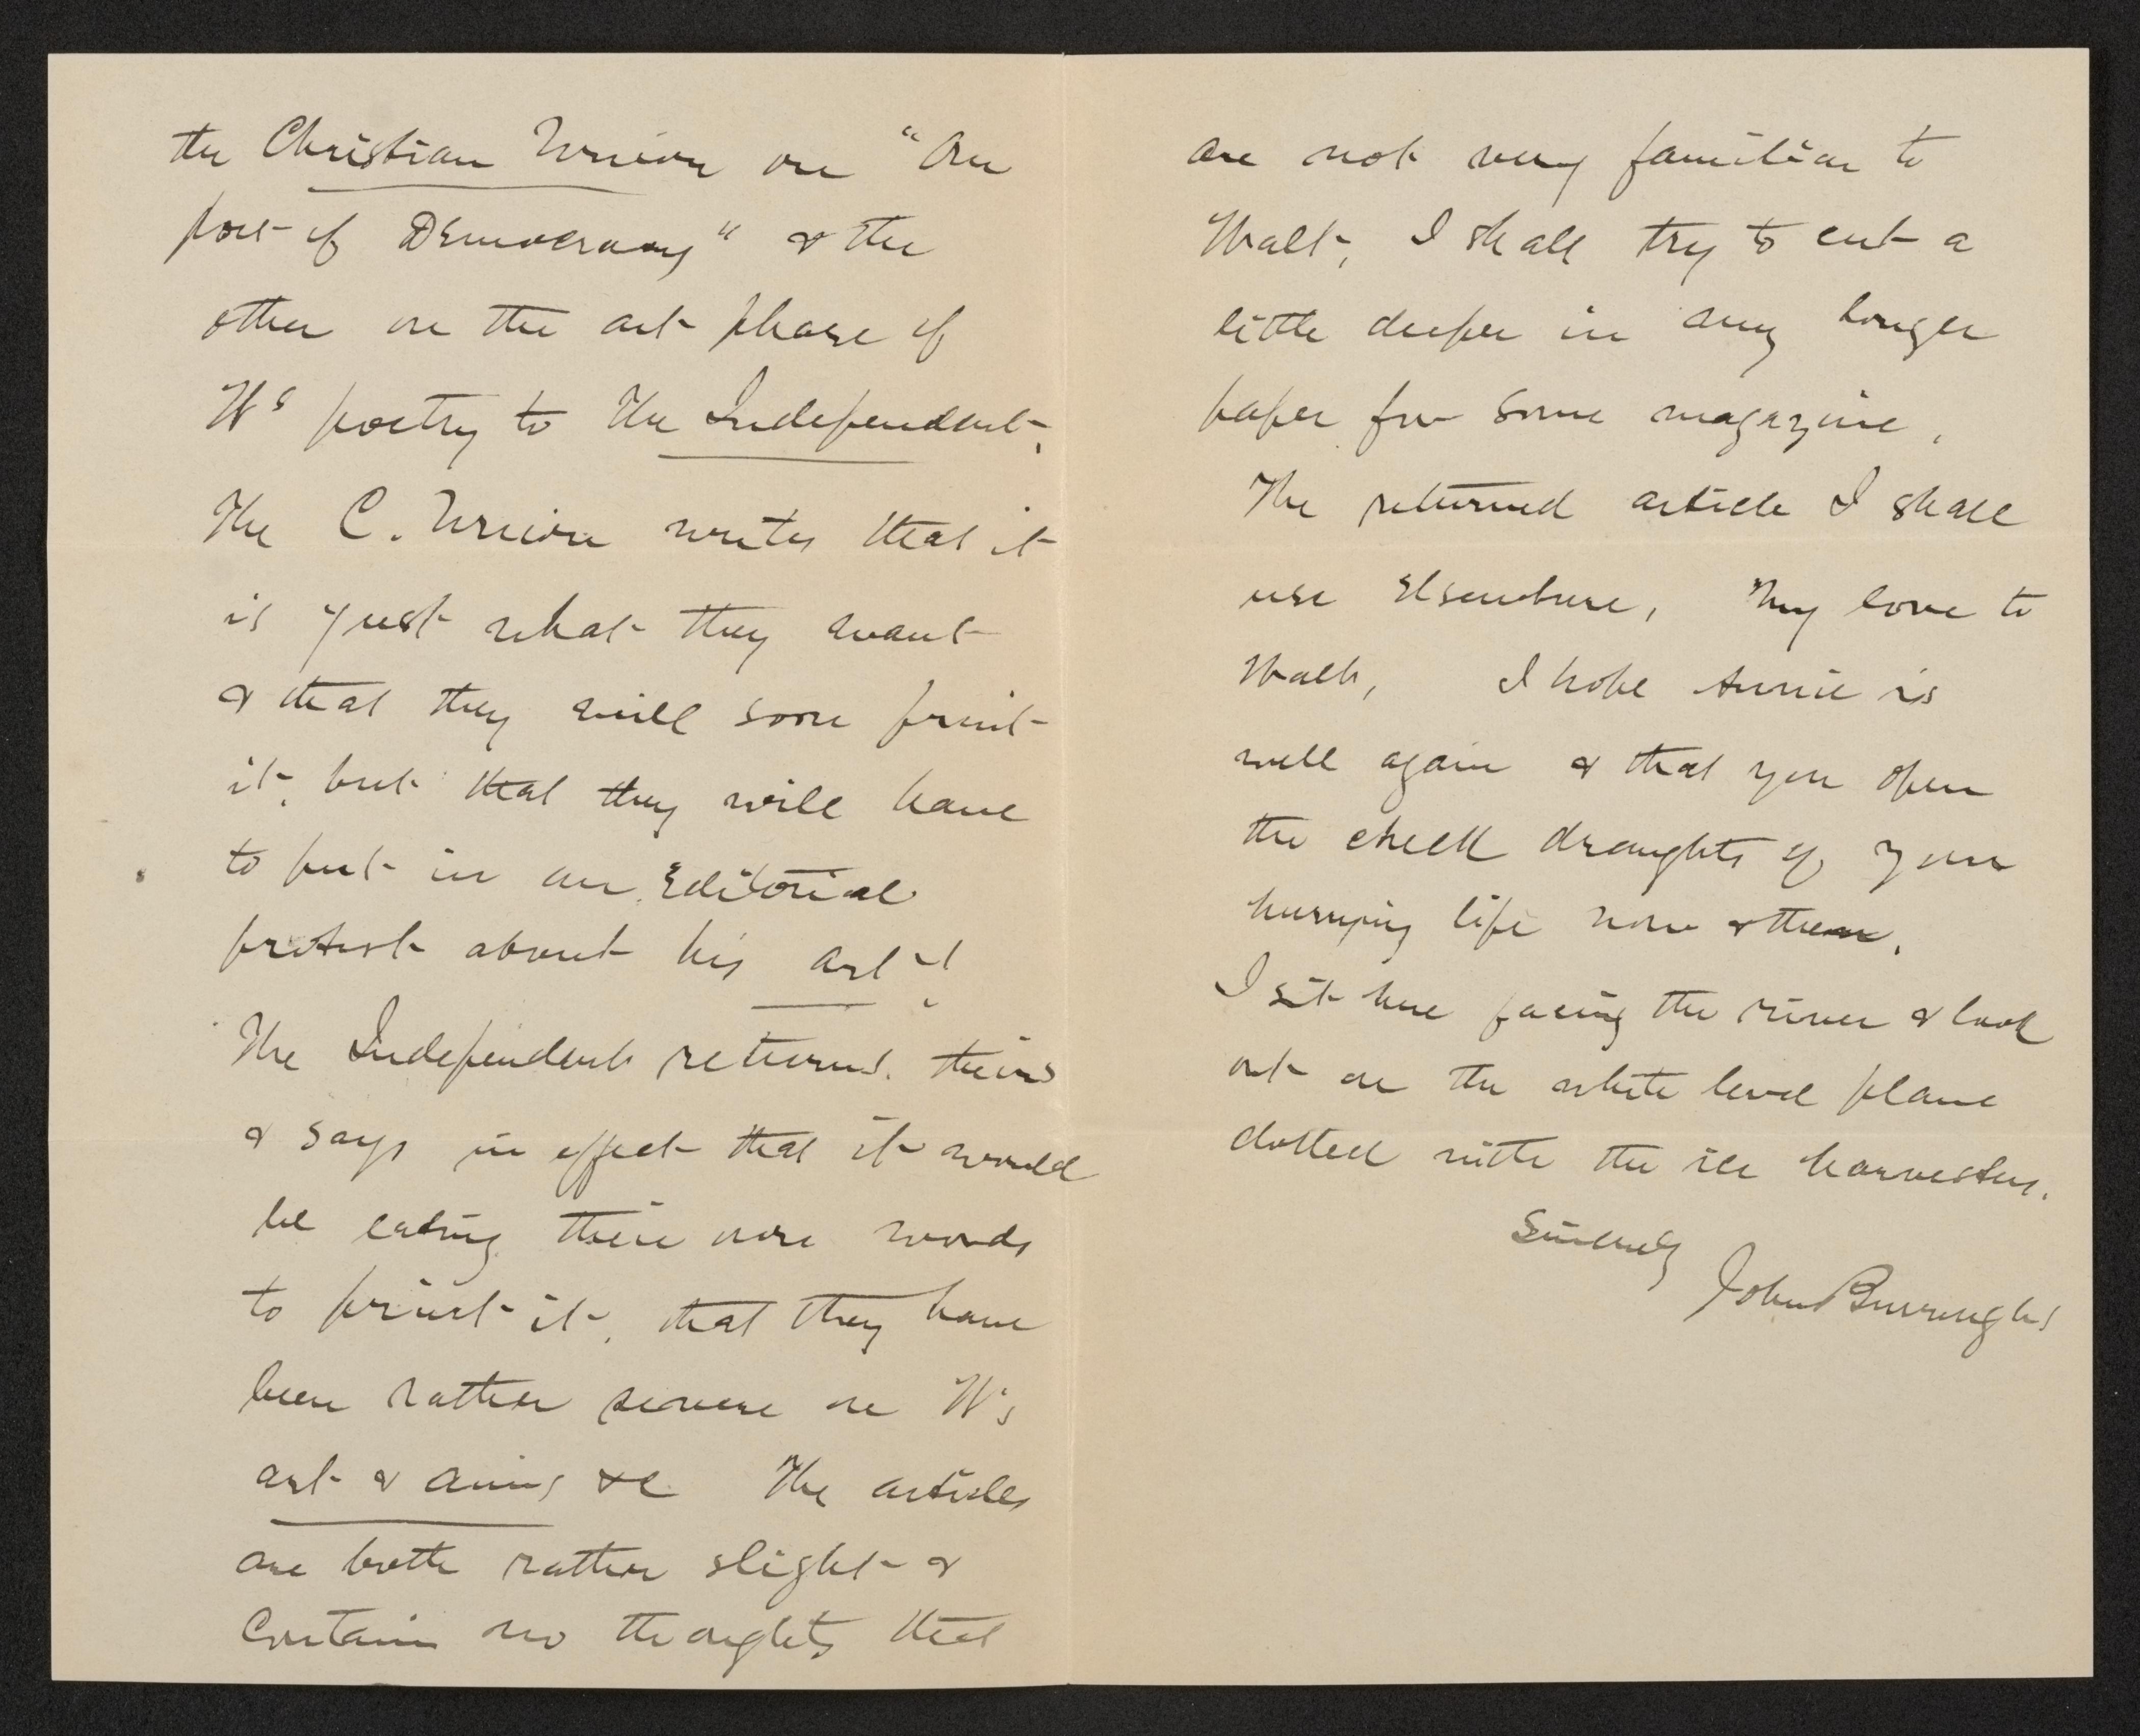 the Christian Union on "Our
poet of Democracy" & the
other on the art phase of
W's poetry to The Independent.
The C. Union writes that it
is just what they want
& that they will soon print
it, but that they will have
to put in an Editorial
protest about his art!
The Independent returns theirs
& says in effect that it would
be eating their own words
to print it, that they have
been rather severe on W's
art & aims &c The articles
are both rather slight &
contain no thoughts that
are not very familiar to
Walt, I shall try to cut a
little deeper in my longer
paper for some magazine,
The returned article I shall
use Elsewhere, My love to
Walt, I hope Annie is
well again & that you open
the check draughts of your
hurrying life now & then.
I sit here facing the river & look
out on the white level plane
dotted with the ice harvesters.
Sincerely
John Burroughs